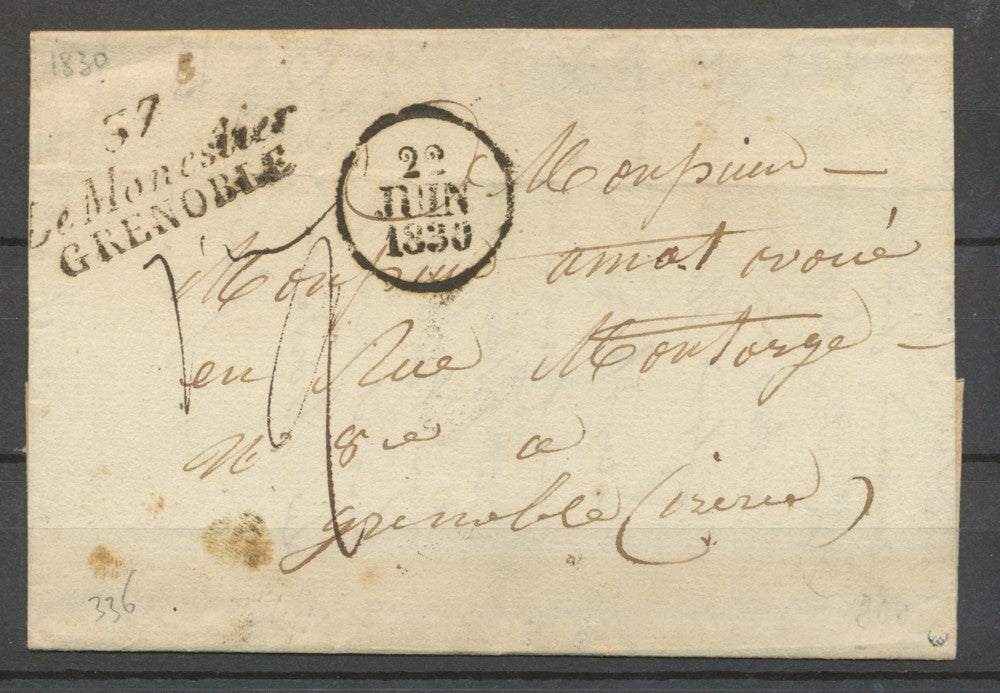 1830
37
Le Monestier
GRENOBLE
22
JUIN
1830
Monsieur
Monsieur amat avoué
en Rue Montorge
N° 8
a
grenoble (isere)
336